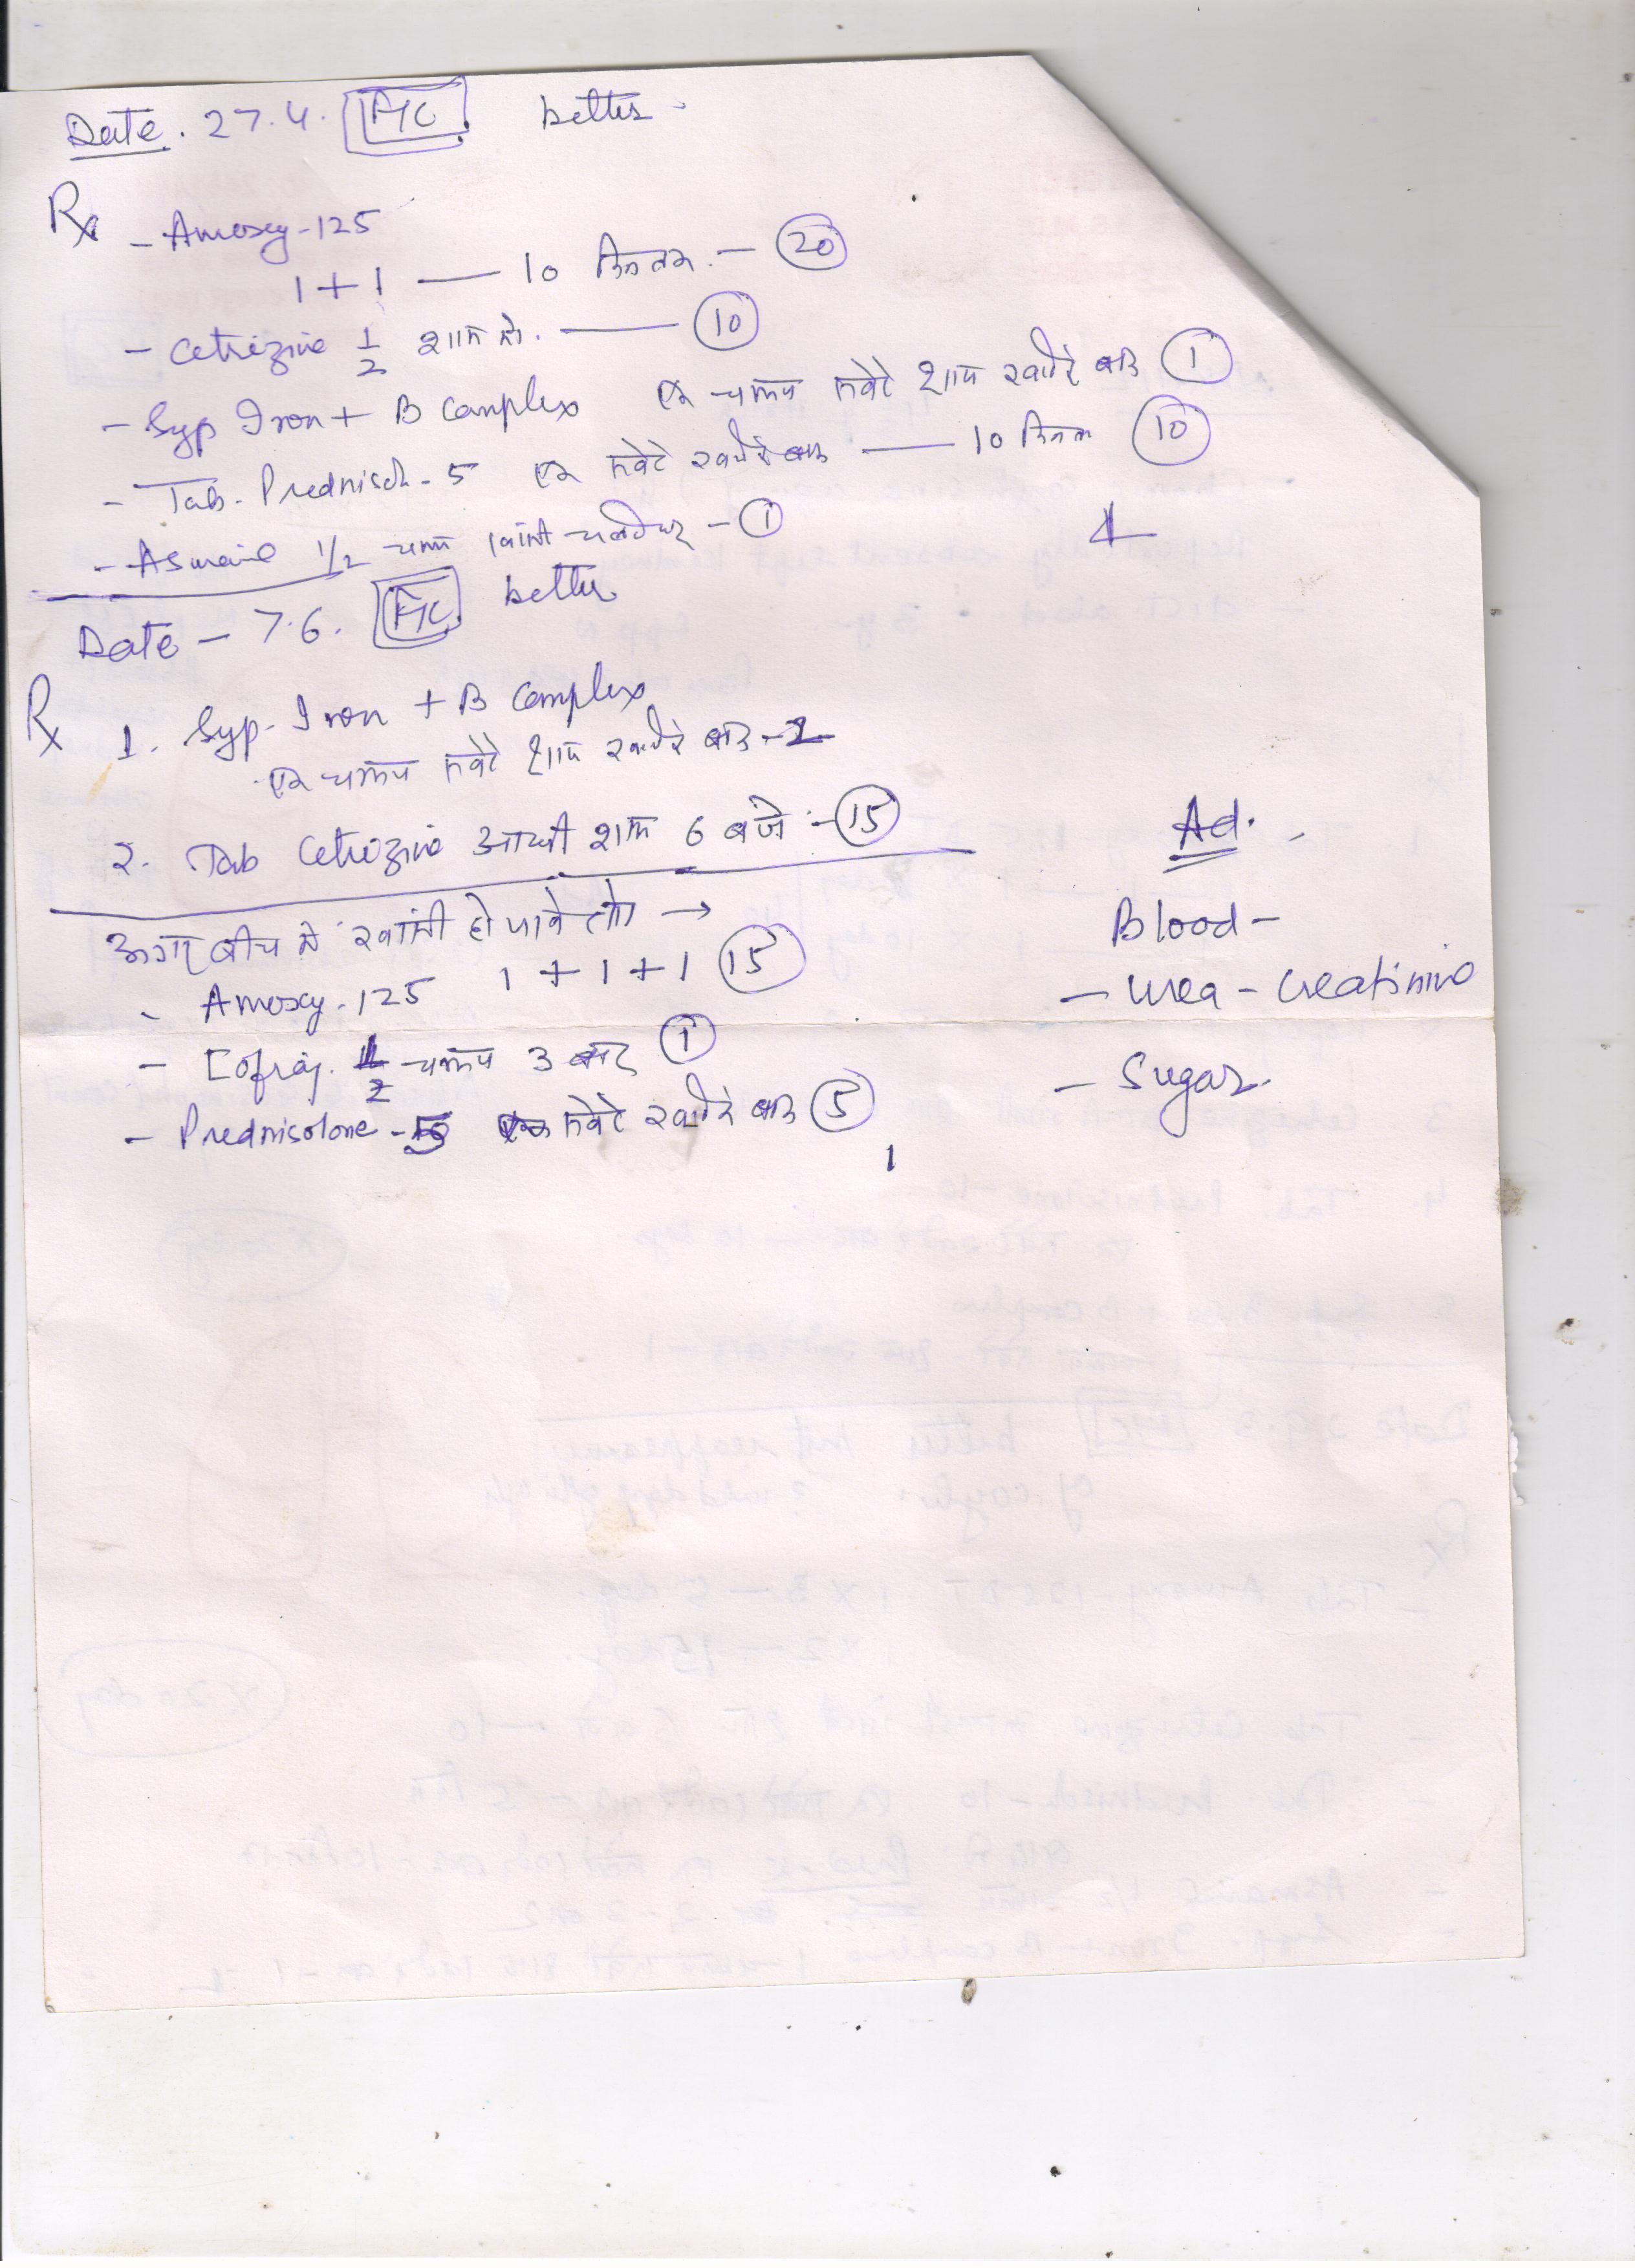 Date. 27.4. HC better
Rx - Amoxy-125
1+1 — 10 दिन तक. — 20
- Cetrizine 1/2 शाम को. — 10
- Syp Iron + B Complex एक चम्मच सवेरे शाम खाने के बाद 1
- Tab. Prednisol. - 5 एक सवेरे खाने के बाद — 10 दिन तक 10
- 1/2 चम्मच खांसी चलने पर - 1
Date - 7.6. HC better
Rx 1. Syp. Iron + B Complex
एक चम्मच सवेरे शाम खाने के बाद - 2
2. Tab Cetrizine आधी शाम 6 बजे - 15
अगर बीच में खांसी हो जावे तो →
- Amoxy-125 1+1+1 15
- 1/2 चम्मच 3 बार 1
- Prednisolone - 5 एक सवेरे खाने के बाद 5
1
Ad.
Blood -
- Urea - Creatinine
- Sugar.